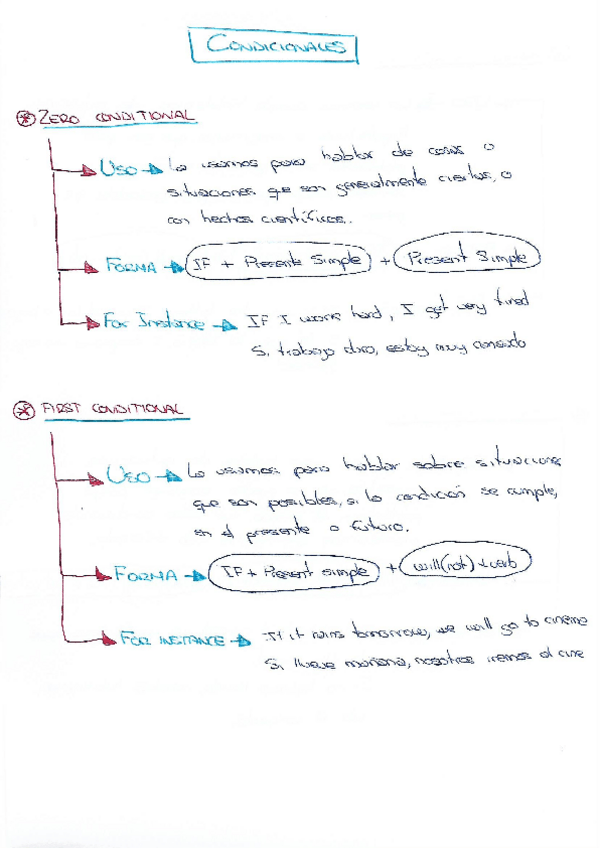 CONDICIONALES
ZERO CONDITIONAL
USO → Lo usamos para hablar de cosas o
situaciones que son generalmente ciertas, o
con hechos científicos.
FORMA → IF + Presente Simple + Present Simple
For Instance → IF I work hard, I get very tired
Si trabajo duro, estoy muy cansado
FIRST CONDITIONAL
USO → Lo usamos para hablar sobre situaciones
que son posibles, si la condición se cumple,
en el presente o futuro.
FORMA → IF + Present simple + will(not) + verb
FOR INSTANCE → If it rains tomorrow, we will go to cinema
Si llueve mañana, nosotros iremos al cine